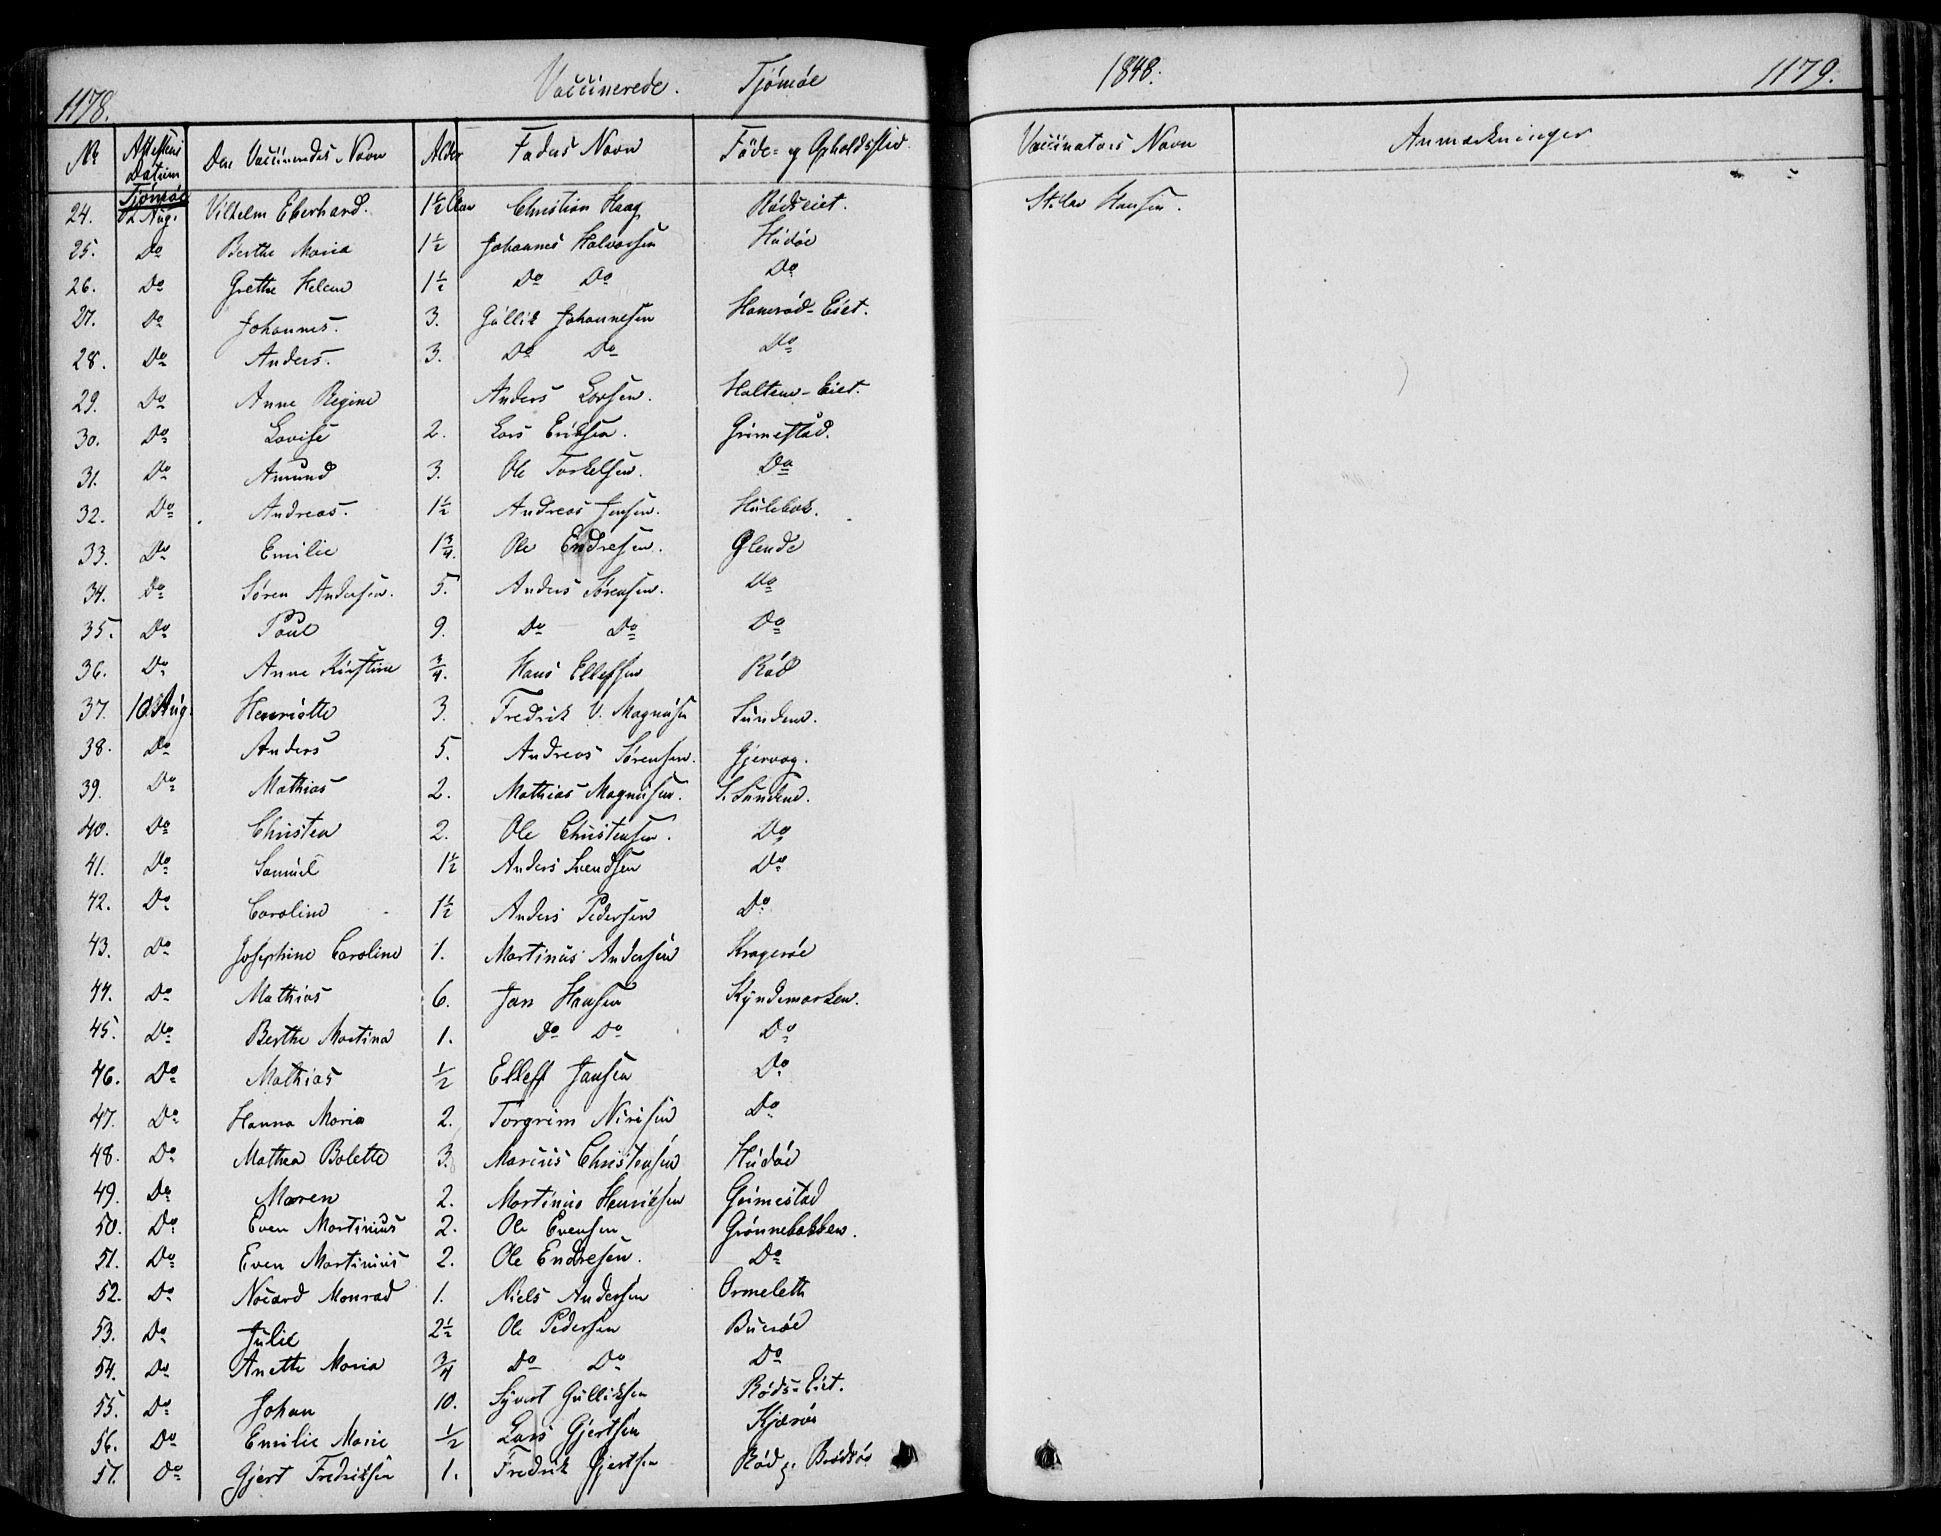 1178. Vaccinerede. Tjömöe
No Attestens Datum Den Vaccineredes Navn Alder Faders Navn Föde- og Opholdssted
Tjömöe
24. 12 Aug. Vilhelm Eberhard. 1½ Aar Christian Haag Rödseiet.
25. Do Berthe Maria 1½ Johannes Halvorsen Hudöe
26. Do Grethe Helene 1½ Do Do Do
27. Do Johannes. 3. Gullik Johannesen Honeröd-Eiet.
28. Do Anders. 3. Do Do Do
29. Do Anne Regine Anders Larsen. Holtene-Eiet.
30. Do Lovise 2. Lars Eriksen. Grimestad.
31. Do Amund 3. Ole Torkelsen. Do
32. Do Andreas. 1½ Andreas Jensen. Hulebak.
33. Do Emilie 1¾. Ole Endresen. Glende
34. Do Sören Andersen. 5. Anders Sörensen. Do
35. Do Poul 9. Do Do Do
36. Do Anne Kirstine ¾. Hans Ellefsen Röd
37. 10 Aug. Henriette 3. Fredrik V. Magnusen Sundene.
38. Do Anders 5. Andreas Sörensen. Gjervog.
39. Do Mathias 2. Mathias Magnusen. S. Sundene.
40. Do Christen 2. Ole Christensen. Do
41. Do Samuel 1½ Anders Svendsen Do
42. Do Caroline 1½ Anders Pedersen Do
43. Do Josephine Caroline 1. Martinus Andersen Krageröe
44. Do Mathias 6. Jan Hansen Kyndemarken.
45. Do Berthe Martina 1. Do Do Do
46. Do Mathias ½ Elleff Jansen Do
47. Do Hanna Maria 2. Torgrim Do
48. Do Mathea Bolette 3. Marcus Christensen Hudöe
49. Do Maren 2. Martinus Henriksen Grimestad
50. Do Even Martinius 2. Ole Evensen Grönnebakken.
51. Do Even Martinius 2. Ole Endresen. Do
52. Do Nicard Monrad 1. Niels Andersen Ormeleth
53. Do Julie 2½ Ole Pedersen Bueröe
54. Do Anette Maria ¾ Do Do Do
55. Do Johan 10. Syvert Gulliksen Röds-Eiet.
56. Do Emilie Marie ½ Lars Gjertsen Kjæröe
57. Do Gjert Fredriksen 1. Fredrik Gjertsen Röd
1848. 1179.
Vaccinators Navn Anmærkninger
Hansen.